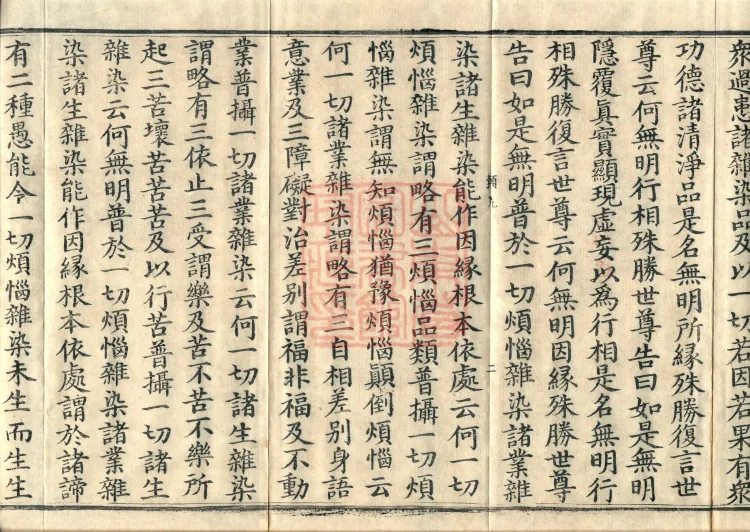 眾過患諸雜染品及以一切若因若果有眾
功德諸清淨品是名無明所緣殊勝復言世
尊云何無明行相殊勝世尊告曰如是無明
隱覆真實顯現虛妄以為行相是名無明行
相殊勝復言世尊云何無明因緣殊勝世尊
告曰如是無明普於一切煩惱雜染諸業雜
染諸生雜染能作因緣根本依處云何一切
煩惱雜染謂略有三煩惱品類普攝一切煩
惱雜染謂無知煩惱猶豫煩惱顛倒煩惱云
何一切諸業雜染謂略有三自相差別身語
意業及三障礙對治差別謂福非福及不動
業普攝一切諸業雜染云何一切諸生雜染
謂略有三依止三受謂樂及苦不苦不樂所
起三苦壞苦苦苦及以行苦普攝一切諸生
雜染云何無明普於一切煩惱雜染諸業雜
染諸生雜染能作因緣根本依處謂於諸諦
有二種愚能令一切煩惱雜染未生而生生
二